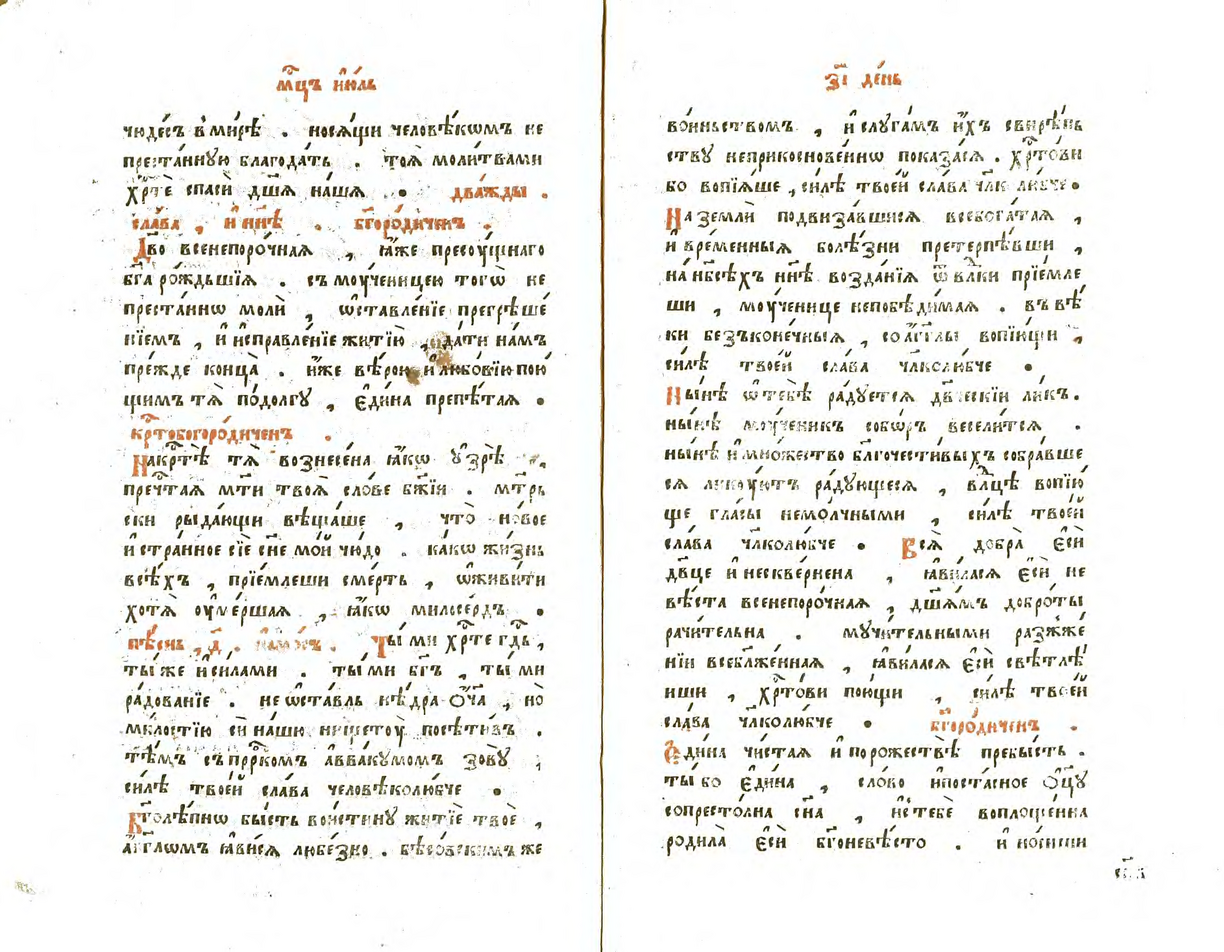 мⷭ҇цъ ию́ль
чюде́съ в ми́рѣ . нося́щи человѣ́кѡмъ не
преста́нную благода́ть . тоя̀ моли́твами
хрⷭ҇тѐ спасѝ дш҃я на́шя . два́жды .
сла́ва , и҆ нн҃ѣ . бг҃оро́диченъ .
Дв҃о всенепоро́чная , ꙗ҆́же пресоу́щнаго
бг҃а ро́ждьшїя . съ моу́ченицею тогѡ̀ не
преста́ннѡ молѝ , ѡ҆ставле́нїе прегрѣше́
нїемъ , и҆ и҆справле́нїе житїю̀ , да́ти на́мъ
пре́жде конца̀ . и҆́же вѣ́рою и҆ любо́вїю пою
щимъ тя̀ по́долгу , є҆ди́на препѣ́тая .
крⷭ҇тобогоро́диченъ .
На крⷭ҇тѣ̀ тя̀ вознесе́на ꙗ҆́кѡ ᲂу҆зрѣ̀ ,
пречⷭ҇тая мт҃и твоя̀ сло́ве бж҃їи . мт҃рь
ски рыда́ющи вѣща́ше , что̀ но́вое
и҆ стра́нное сїѐ сн҃е мо́й чю́до . ка́кѡ жи́знь
всѣ́хъ , прїе́млеши сме́рть , ѡ҆живи́ти
хотя̀ оуме́ршая , ꙗ҆́кѡ милосе́рдъ .
пѣ́снь , д҃ . і҆рмо́съ . Ты́ ми хрⷭ҇те гдⷭ҇ь ,
ты́ же и҆ си́лами . ты́ ми бг҃ъ , ты́ ми
ра́дованїе . не ѡ҆ста́вль нѣ́дра ѻ҆́ч҃а , но
мл҃остїю сѝ на́шю нищетоу̀ посѣти́въ .
тѣ́мъ съ прⷪ҇ро́комъ а҆ввакумомъ зовꙋ̀ ;
си́лѣ твое́й сла́ва человѣколю́бче .
Бг҃олѣ́пнѡ бы́сть вои́стину житїѐ твоѐ ,
а҆́гг҃лѡмъ ꙗ҆ви́ся любе́зно . бѣсо́вскимъ же
з҃і де́нь
во́иньствомъ , и҆ слуга́мъ и҆́хъ свирѣ́пь
ству неприкоснове́ннѡ показа́ся . хрⷭ҇то́ви
бо вопїя́ше , си́лѣ твое́й сла́ва чл҃к лю́бче .
На землѝ подвиза́вшися всебога́тая ,
и҆ вре́менныя болѣ́зни претерпѣ́вши ,
на нб҃сѣ́хъ нн҃ѣ возда́нїя ѿ влⷣки прїе́мле
ши , моу́ченице непобѣди́мая . въ вѣ́
ки безъконе́чныя , со а҆́гг҃лы вопїю́щи ,
си́лѣ твое́й сла́ва чл҃колю́бче .
Ны́нѣ ѡ҆ тебѣ̀ ра́дуется дв҃ческїи ли́къ .
ны́нѣ моу́ченикъ собѡ́ръ весели́тся .
ны́нѣ и҆ мно́жество бл҃гочести́выхъ собра́вше
ся ликоую́тъ ра́дующеся , влⷣцѣ вопїю́
ще гла́сы немо́лчными , си́лѣ твое́й
сла́ва чл҃колю́бче . Вся̀ добра̀ є҆сѝ
дв҃це и҆ нескве́рнена , ꙗ҆ви́лася є҆сѝ не
вѣ́ста всенепоро́чная , дш҃я́мъ добро́ты
рачи́тельна . мучи́тельными разжже́
нїи всеблже́нная , ꙗ҆ви́лася є҆сѝ свѣтлѣ́
иши , хрⷭ҇то́ви пою́щи , си́лѣ твое́й
сла́ва чл҃колю́бче . бг҃оро́диченъ .
Є҆ди́на чи́стая и҆ по рожествѣ̀ пребы́сть .
ты́ бо є҆ди́на , сло́во и҆поста́сное ѻ҆ц҃у̀
сопресто́лна сн҃а , и҆с тебѐ воплоще́нна
родила̀ є҆сѝ бг҃оневѣ́сто . и҆ но́сиши